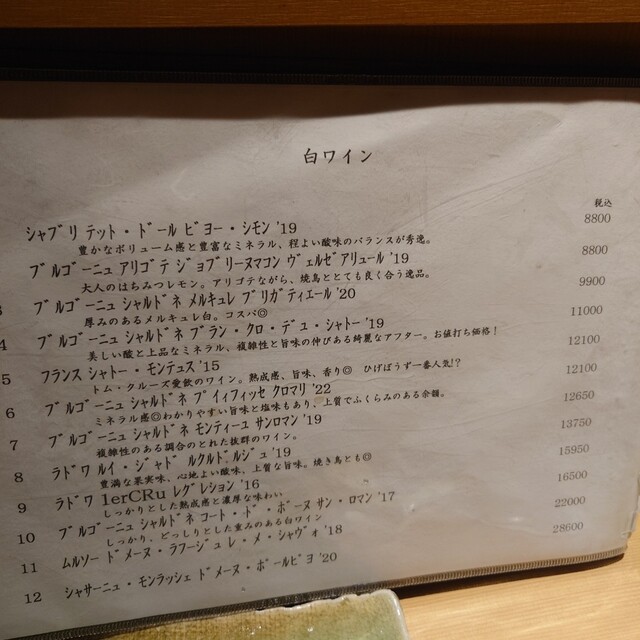 白ワイン
税込
シャブリ テット・ドール ビヨー・シモン '19 8800
豊かなボリューム感と豊富なミネラル、程よい酸味のバランスが秀逸。
ブルゴーニュ アリゴテ ジョブリーヌマコン ヴェルゼアリュール '19 8800
大人のはちみつレモン。アリゴテながら、焼鳥ととても良く合う逸品。
3 ブルゴーニュ シャルドネ メルキュレ ブリガティエール '20 9900
厚みのあるメルキュレ白。コスパ◎
4 ブルゴーニュ シャルドネ ブラン・クロ・デュ・シャトー '19 11000
美しい酸と上品なミネラル、複雑性と旨味の伸びある綺麗なアフター。お値打ち価格！
5 フランス シャトー・モンテュス '15 12100
トム・クルーズ愛飲のワイン。熟成感、旨味、香り◎ ひげぼうず一番人気!?
6 ブルゴーニュ シャルドネ プイィフィッセ クロマリ '22 12100
ミネラル感◎わかりやすい旨味と塩味もあり、上質でふくらみのある余韻。
7 ブルゴーニュ シャルドネ モンティーユ サンロマン '19 12650
複雑性のある調合のとれた抜群のワイン。
8 ラドワ ルイ・ジャド ルクルドルジュ '19 13750
豊満な果実味、心地よい酸味、上質な旨味。焼き鳥とも◎
9 ラドワ 1erCRu レグレション '16 15950
しっかりとした熟成感と濃厚な味わい
10 ブルゴーニュ シャルドネ コート・ド・ボーヌ サン・ロマン '17 16500
しっかり、どっしりとした重みのある白ワイン
11 ムルソー ドメーヌ・ラフージュ レ・メ・シャヴォ '18 22000
12 シャサーニュ・モンラッシェ ドメーヌ・ポールピヨ '20 28600